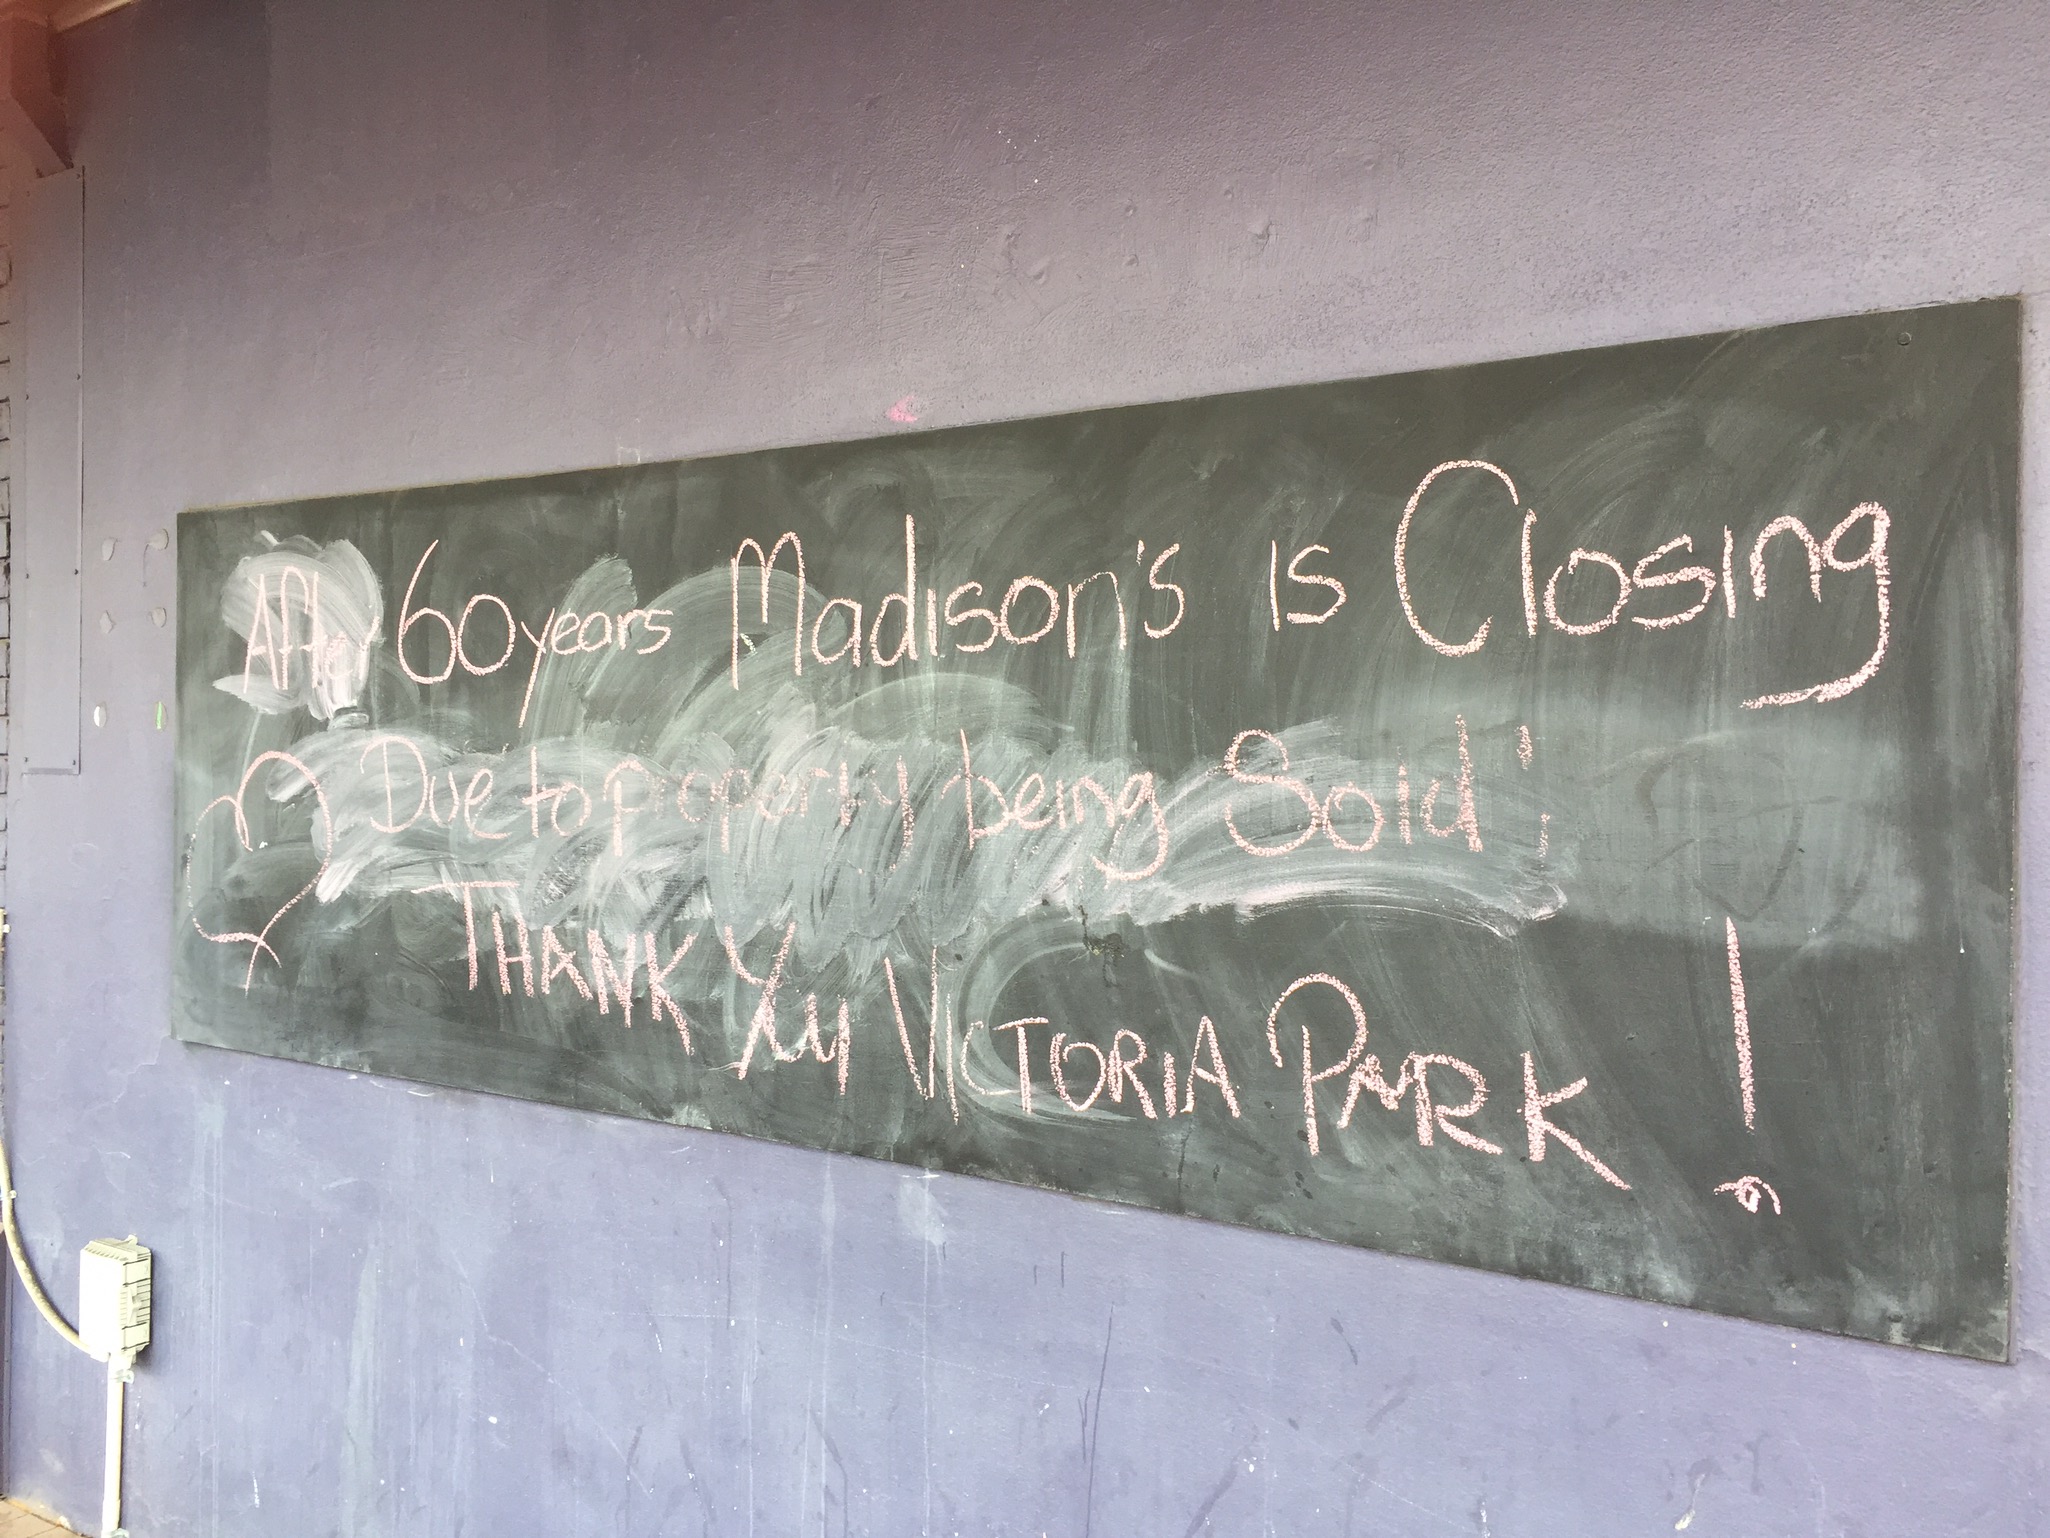 After 60 years Madison's is Closing
Due to property being Sold!
THANK You VICTORIA PARK!